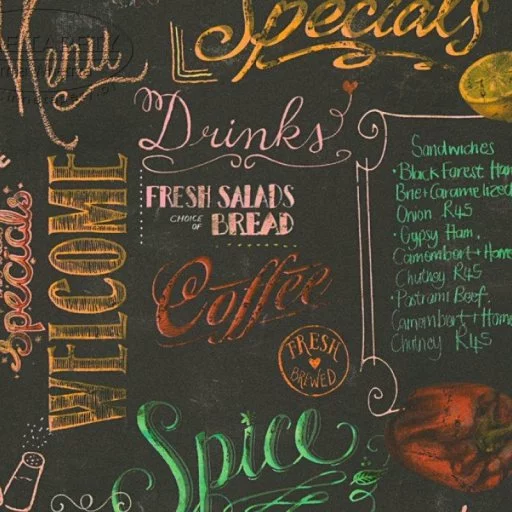 Menu
Specials
Drinks
FRESH SALADS
CHOICE OF BREAD
Specials
WELCOME
Coffee
FRESH
BREWED
Spice
Sandwiches
• Black Forest Ham
Brie + Caramelized
Onion R45
• Gypsy Ham,
Camembert + Home
Chutney R45
• Pastrami Beef,
Camembert + Home
Chutney R45